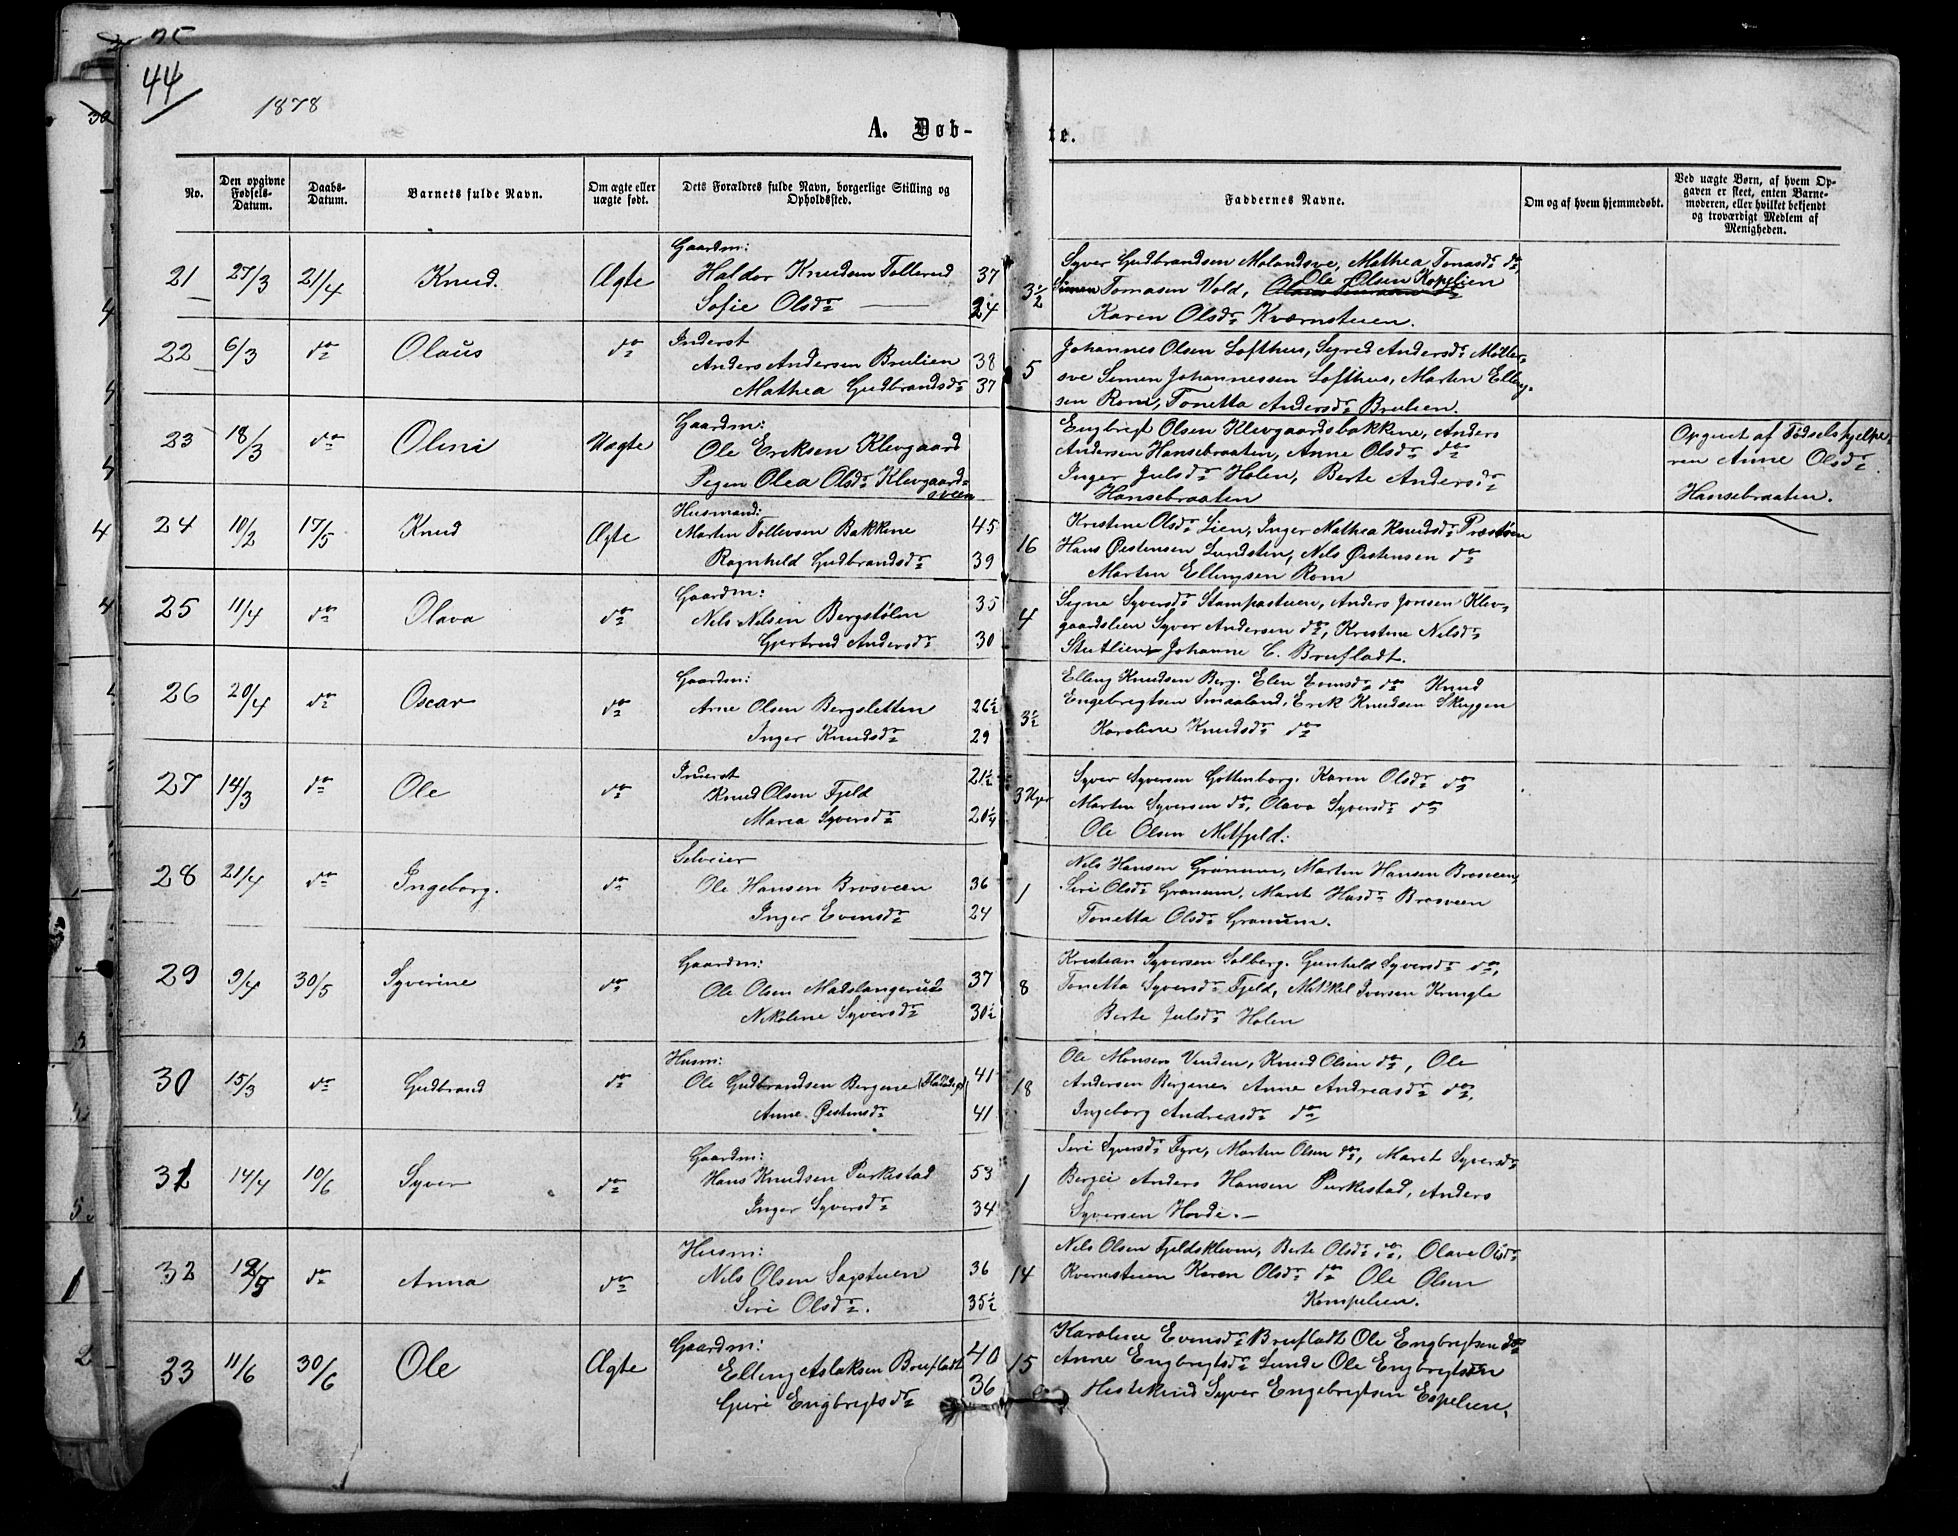 44
1878
A. Døb-
te.
No.
Den opgivne Fødsels-Datum.
Daabs-Datum.
Barnets fulde Navn.
Om ægte eller uægte født.
Dets Forældres fulde Navn, borgerlige Stilling og Opholdssted.
Faddernes Navne.
Om og af hvem hjemmedøbt.
Ved uægte Børn, af hvem Opgaven er skeet, enten Barnemoderen, eller hvilket bekjendt og troværdigt Medlem af Menigheden.
Gaardm:
21 27/3 21/4 Knud. Ægte Haldor Knudsen Tollerud 37
Sofie Olsdr 24
3½
Syver Gudbrandsen Molandsve, Mathea Tomasdr do,
Simen Tomasen Vold, Ole Olsen Kopelien
Karen Olsdr Kværnstuen.
Inderst
22 6/3 do Olaus do Anders Andersen Brulien 38
Mathea Gudbrandsdr 37
5
Johannes Olsen Lofthus, Sigred Andersdr Møller-
sve Simen Johannessen Lofthus, Martin Elling-
sen Rom, Tonetta Andersdr Brulien.
Gaardm:
23 18/3 do Olini Uægte Ole Eriksen Klevgaard
Pigen Olea Olsdr Klevgaard-
sveen
Engbregt Olsen Klevgaardsbakkene, Anders
Andersen Hansebraaten, Anne Olsdr do
Inger Julsdr Holen, Berte Andersdr
Hansebraaten
Opgivet af Fødselshjelpe-
ren Anne Olsdr
Hansebraaten.
Husmand:
24 10/2 17/5 Knud Ægte Martin Tollevsen Bakkene 45
Ragnhild Gudbrandsdr 39
16
Kristine Olsdr Lien, Inger Mathea Knudsdr Præstøen
Hans Østensen Lundsten, Nils Østensen do
Martin Ellingsen Rom
Gaardm:
25 11/4 do Olava do Nils Nilsen Bergstølen 35
Gjertrud Andersdr 30
4
Signe Syversdr Stampastuen, Anders Jonsen Klev-
gaardslien Syver Andersen do, Kristine Nilsdr
Stutlien Johanne C. Brufladt.
Gaardm:
26 20/4 do Oscar do Arne Olsen Bergsletten 26½
Inger Knudsdr 29
3½
Elling Knudsen Berg. Elen Evensdr do Knud
Engebregtsen Smaaland, Erik Knudsen Skyggen
Karoline Knudsdr do
Inderst
27 14/3 do Ole do Knud Olsen Fjeld 21½
Maria Syversdr 20¼
3 Uger
Syver Syversen Gottenborg. Karen Olsdr do
Martin Syversen do, Olava Syversdr do
Ole Olsen Mitfjeld.
Selveier
28 21/4 do Ingeborg. do Ole Hansen Brosveen 36
Inger Evensdr 24
1
Nils Hansen Granum, Martin Hansen Brosveen,
Siri Olsdr Granum, Marit Hansdr Brosveen
Tonetta Olsdr Granum.
Gaardm:
29 9/4 30/5 Syverine do Ole Olsen Madslangerud 37
Nikoline Syversdr 30½
8
Kristian Syversen Solberg. Gunhild Syversdr do,
Tonetta Syversdr Fjeld, Mikkel Iversen Kringle
Berte Julsdr Holen
Husm:
30 15/3 do Gudbrand do Ole Gudbrandsen Bergene 41
Anne Østensdr 41
18
Ole Monsen Vinden, Knud Olsen do, Ole
Andersen Bergene, Anne Andreasdr do,
Ingeborg Andreasdr do
Gaardm:
31 14/4 10/6 Syver do Hans Knudsen Purkestad 53
Inger Syversdr 34
1
Siri Syversdr Fyre, Martin Olsen do, Marit Syversdr
Bergei Anders Hansen Purkestad, Anders
Syversen Hovde.
Husm:
32 12/5 do Anna do Nils Olsen Sagstuen 36
Siri Olsdr. 35½
14
Nils Olsen Fjeldskleven, Berte Olsdr do, Olave Olsdr
Kvernstuen Karen Olsdr do Ole Olsen
Kompelien.
Gaardm:
33 11/6 30/6 Ole Ægte Elling Aslaksen Brufladt 40
Guri Engbregtsdr 36
15
Karoline Evensdr Brufladt Ole Engbregtsen do
Anne Engbregtsdr Lunde Ole Engbregtsen
Hestekind Syver Engebregtsen Espelien.